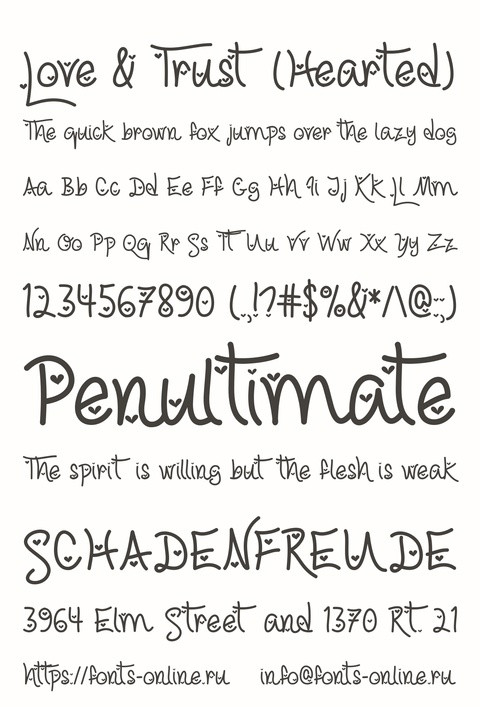 Love & Trust (Hearted)
The quick brown fox jumps over the lazy dog
Aa Bb Cc Dd Ee Ff Gg Hh Ii Jj Kk Ll Mm
Nn Oo Pp Qq Rr Ss Tt Uu Vv Ww Xx Yy Zz
1234567890 (.,!?#$%&*/\@:;)
Penultimate
The spirit is willing but the flesh is weak
SCHADENFREUDE
3964 Elm Street and 1370 Rt. 21
https://fonts-online.ru info@fonts-online.ru